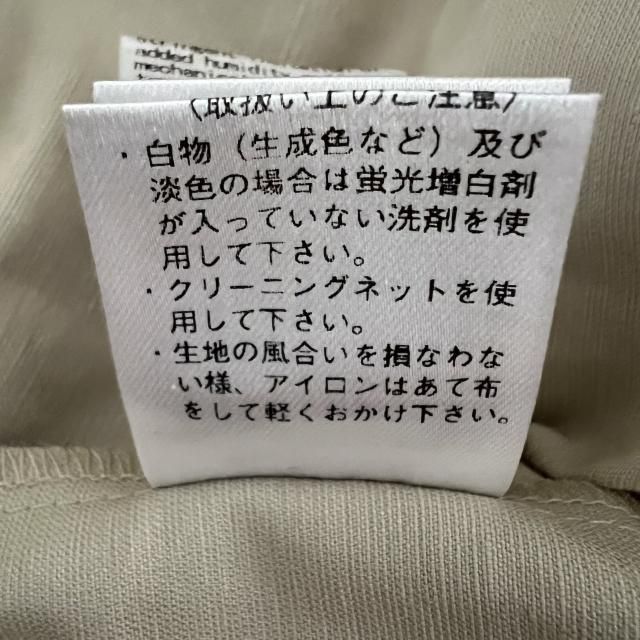 added humidity
(取扱い上のご注意)
・白物(生成色など)及び
淡色の場合は蛍光増白剤
が入っていない洗剤を使
用して下さい。
・クリーニングネットを使
用して下さい。
・生地の風合いを損なわな
い様、アイロンはあて布
をして軽くおかけ下さい。